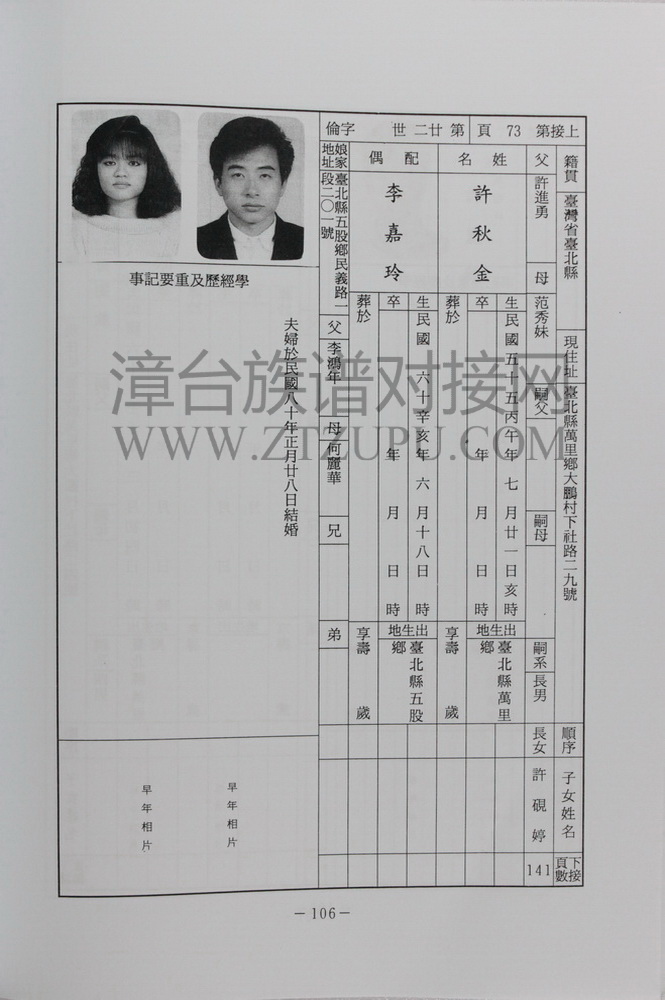 上接第 73 頁 第廿二世 字倫
籍貫 臺灣省臺北縣
現住址 臺北縣萬里鄉大鵬村下社路二九號
順序 子女姓名 下接頁數
父 許進勇 母 范秀妹 嗣父 嗣母 嗣系 長男
長女 許硯婷 141
姓名 許秋金
生 民國五十五丙午年七月廿一日亥時
出生地 臺北縣萬里鄉
卒 年 月 日 時
葬於
享壽 歲
配偶 李嘉玲
生 民國六十辛亥年六月十八日 時
出生地 臺北縣五股鄉
卒 年 月 日 時
葬於
享壽 歲
娘家地址 臺北縣五股鄉民義路一段二〇一號
父 李鴻年 母 何麗華 兄 弟
學經歷及重要記事
夫婦於民國八十年正月廿八日結婚
早年相片
早年相片
漳台族谱对接网
WWW.ZTZUPU.COM
－106－